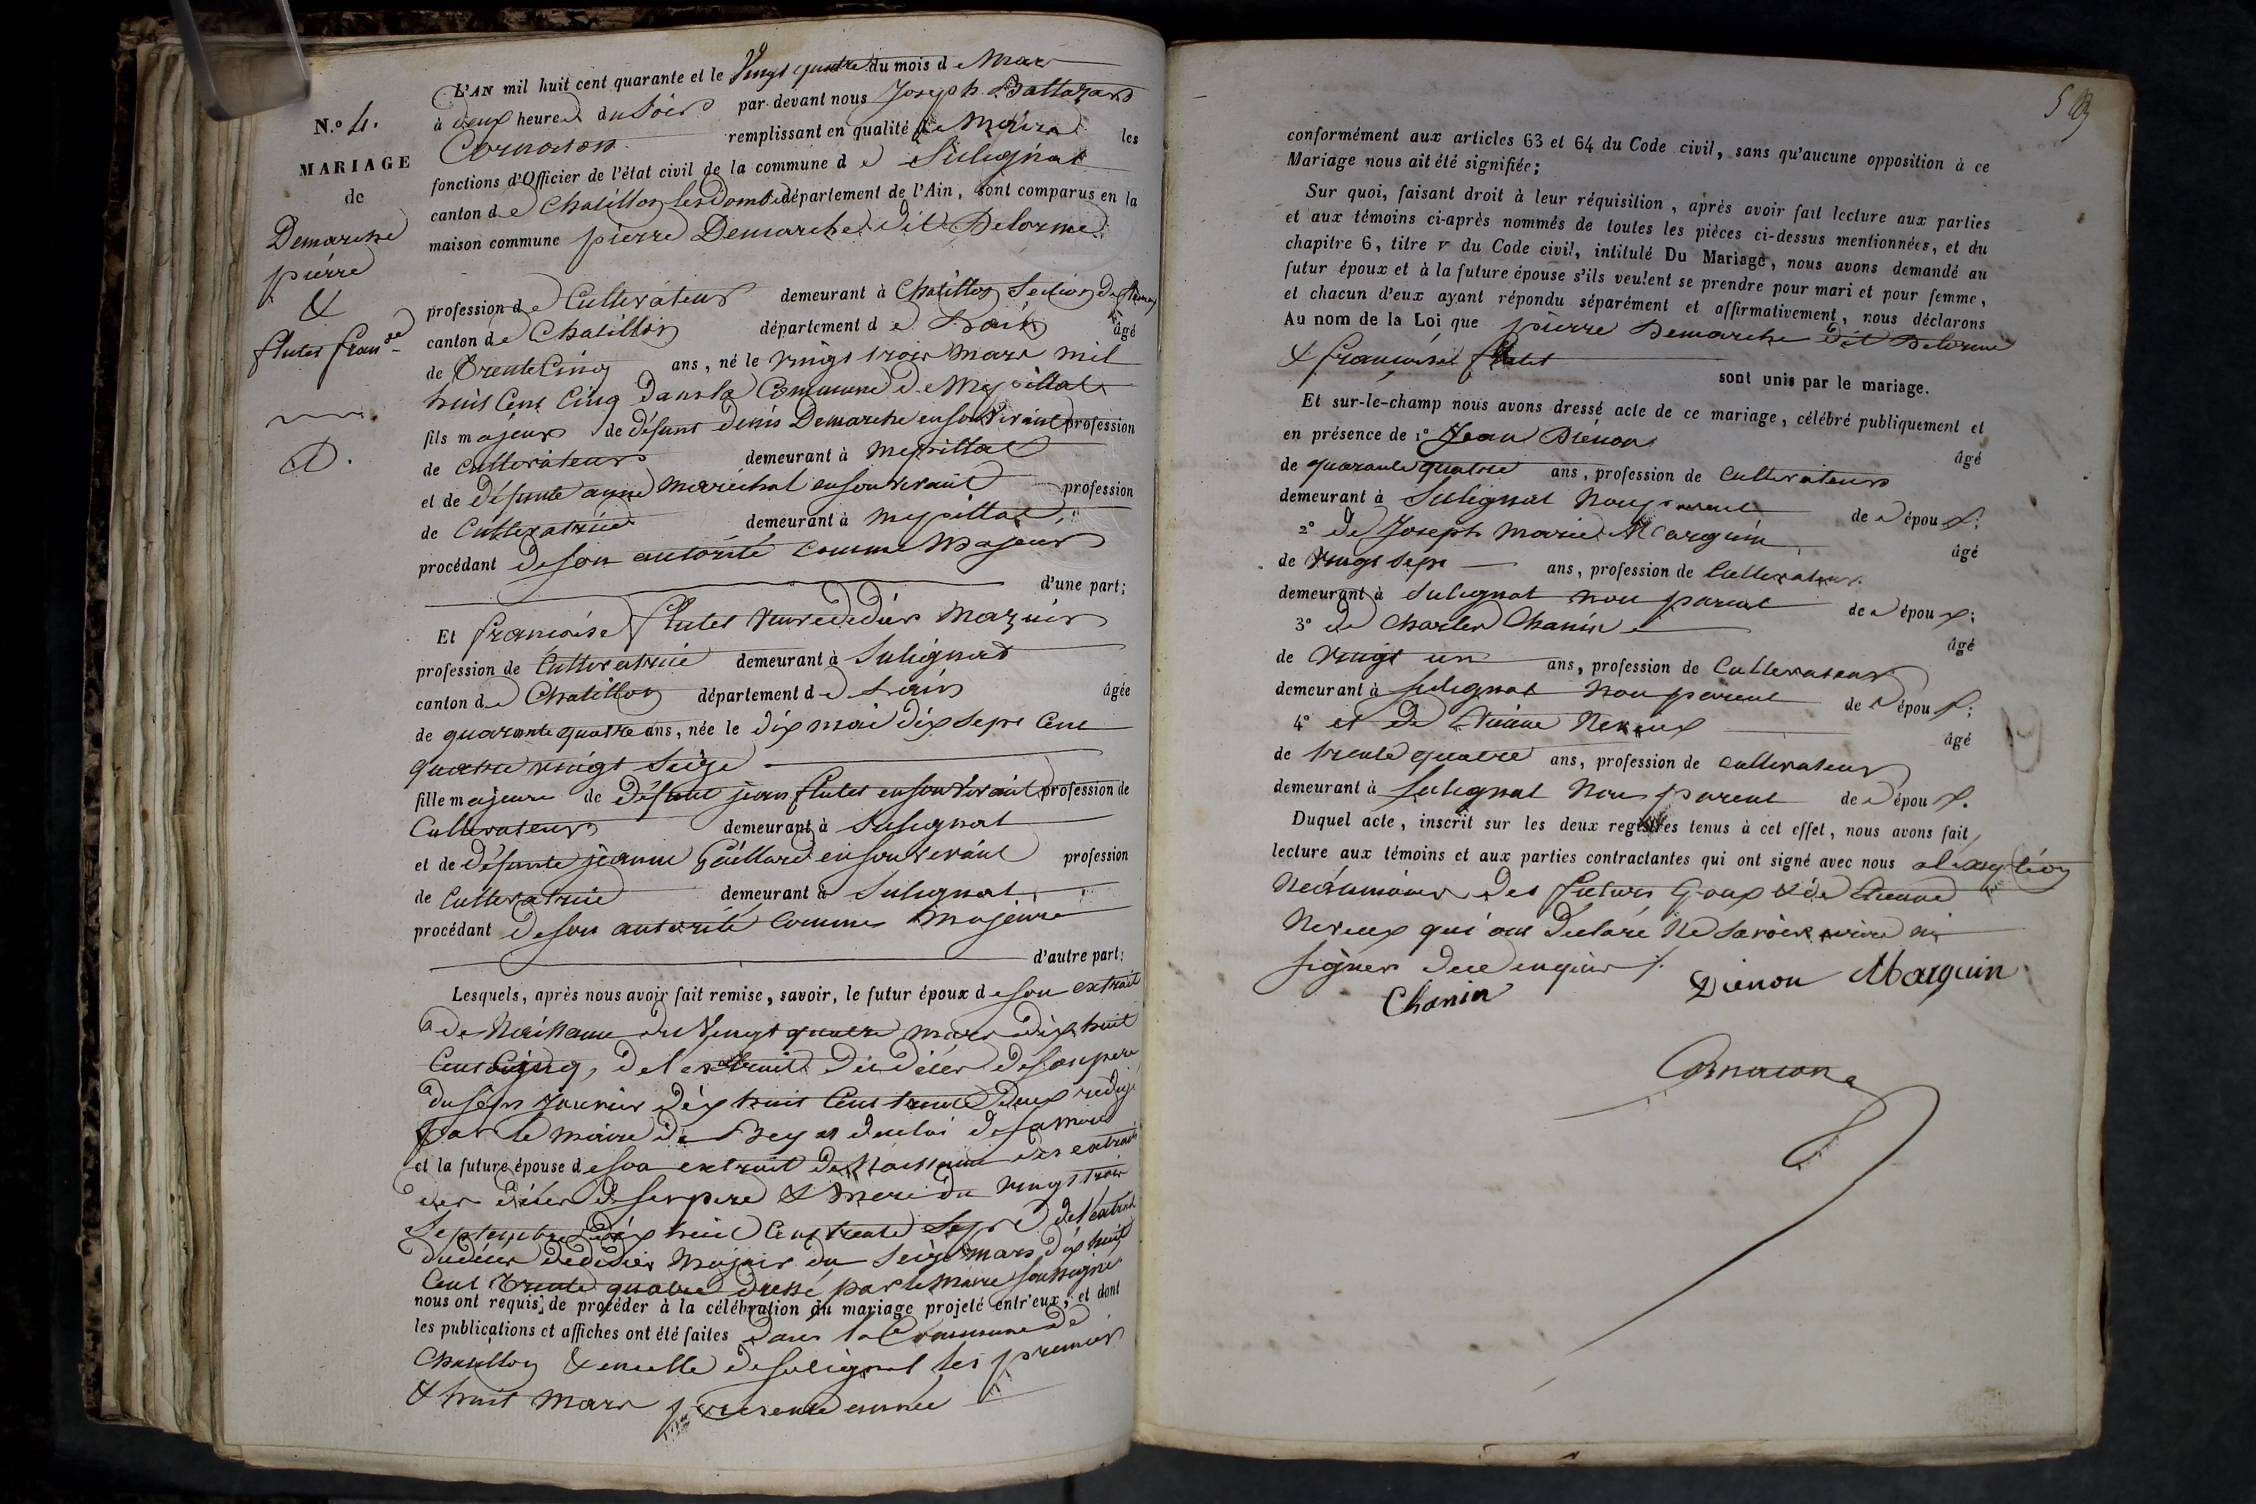 N.° 4.
MARIAGE
de
Demarche
pierre
&
flutet Fran.se
L'AN mil huit cent quarante et le Vingt quatre du mois de Mars
à deux heures du Soir par-devant nous Joseph Baltazard
Cornaton remplissant en qualité de Maire les
fonctions d'Officier de l'état civil de la commune de Sulignat
canton de Chatillon les Dombe département de l'Ain, sont comparus en la
maison commune pierre Demarche dit Delorme
profession de Cultivateur demeurant à Chatillon Section de
canton de Chatillon département de L'ain âgé
de Trente Cinq ans, né le vingt trois Mars mil
huit Cent Cinq dans la Commune de Mepillat
fils majeur de défunt Denis Demarche en son vivant profession
de cultivateur demeurant à Mepillat
et de défunte anne Maréchal en son vivant profession
de Cultivatrice demeurant à Mepillat,
procédant de son autorité comme Majeur
d'une part;
Et françoise flutet veuve de didier Mazuir
profession de Cultivatrice demeurant à Sulignat
canton de Chatillon département de L'ain âgée
de quarante quatre ans, née le dix mai dix sept Cent
quatre vingt Seize
fille majeure de défunt jean flutet en son vivant profession de
Cultivateur demeurant à Sulignat
et de défunte jeanne Guillard en son vivant profession
de Cultivatrice demeurant à Sulignat,
procédant de son autorité comme Majeure
d'autre part;
Lesquels, après nous avoir fait remise, savoir, le futur époux de son extrait
de Naissance du Vingt quatre mars dix huit
Cent Cinq, de l'extrait du décès de son père
du sept Janvier dix huit Cent trente deux redigé
par le maire de Bey et de celui de sa mère
et la future épouse de son extrait de Naissance des extraits
des décès de ses père & mère du vingt trois
Septembre dix huit Cent trente Sept de l'extrait
du décès de didier Mazuir du Seize mars dix huit
Cent Trente quatre dressé par le Maire soussigné
nous ont requis, de procéder à la célébration du mariage projeté entr'eux, et dont
les publications et affiches ont été faites dans la Commune de
Chatillon & en celle de Sulignat les premier
& huit Mars présente année
conformément aux articles 63 et 64 du Code civil, sans qu'aucune opposition à ce
Mariage nous ait été signifiée;
Sur quoi, faisant droit à leur réquisition, après avoir fait lecture aux parties
et aux témoins ci-après nommés de toutes les pièces ci-dessus mentionnées, et du
chapitre 6, titre V du Code civil, intitulé Du Mariage, nous avons demandé au
futur époux et à la future épouse s'ils veulent se prendre pour mari et pour femme,
et chacun d'eux ayant répondu séparément et affirmativement, nous déclarons
Au nom de la Loi que pierre Demarche dit Delorme
& françoise flutet
sont unis par le mariage.
Et sur-le-champ nous avons dressé acte de ce mariage, célébré publiquement et
en présence de 1° Jean Dienon âgé
de quarante quatre ans, profession de Cultivateur
demeurant à Sulignat Non parent des époux;
2° de Joseph Marie Marguin âgé
de vingt Sept ans, profession de Cultivateur
demeurant à Sulignat non parent des époux;
3° de Charles Chanin âgé
de vingt un ans, profession de Cultivateur
demeurant à Sulignat Non parent des époux;
4° et de Etienne Neveux âgé
de trente quatre ans, profession de cultivateur
demeurant à Sulignat Non parent des époux.
Duquel acte, inscrit sur les deux registres tenus à cet effet, nous avons fait
lecture aux témoins et aux parties contractantes qui ont signé avec nous à l'exception
Néanmoins des futurs Epoux & de Etienne
Neveux qui ont Déclaré Ne Savoir écrire ni
signer de ce enquis /.
Chanin Dienon Marguin
Cornaton